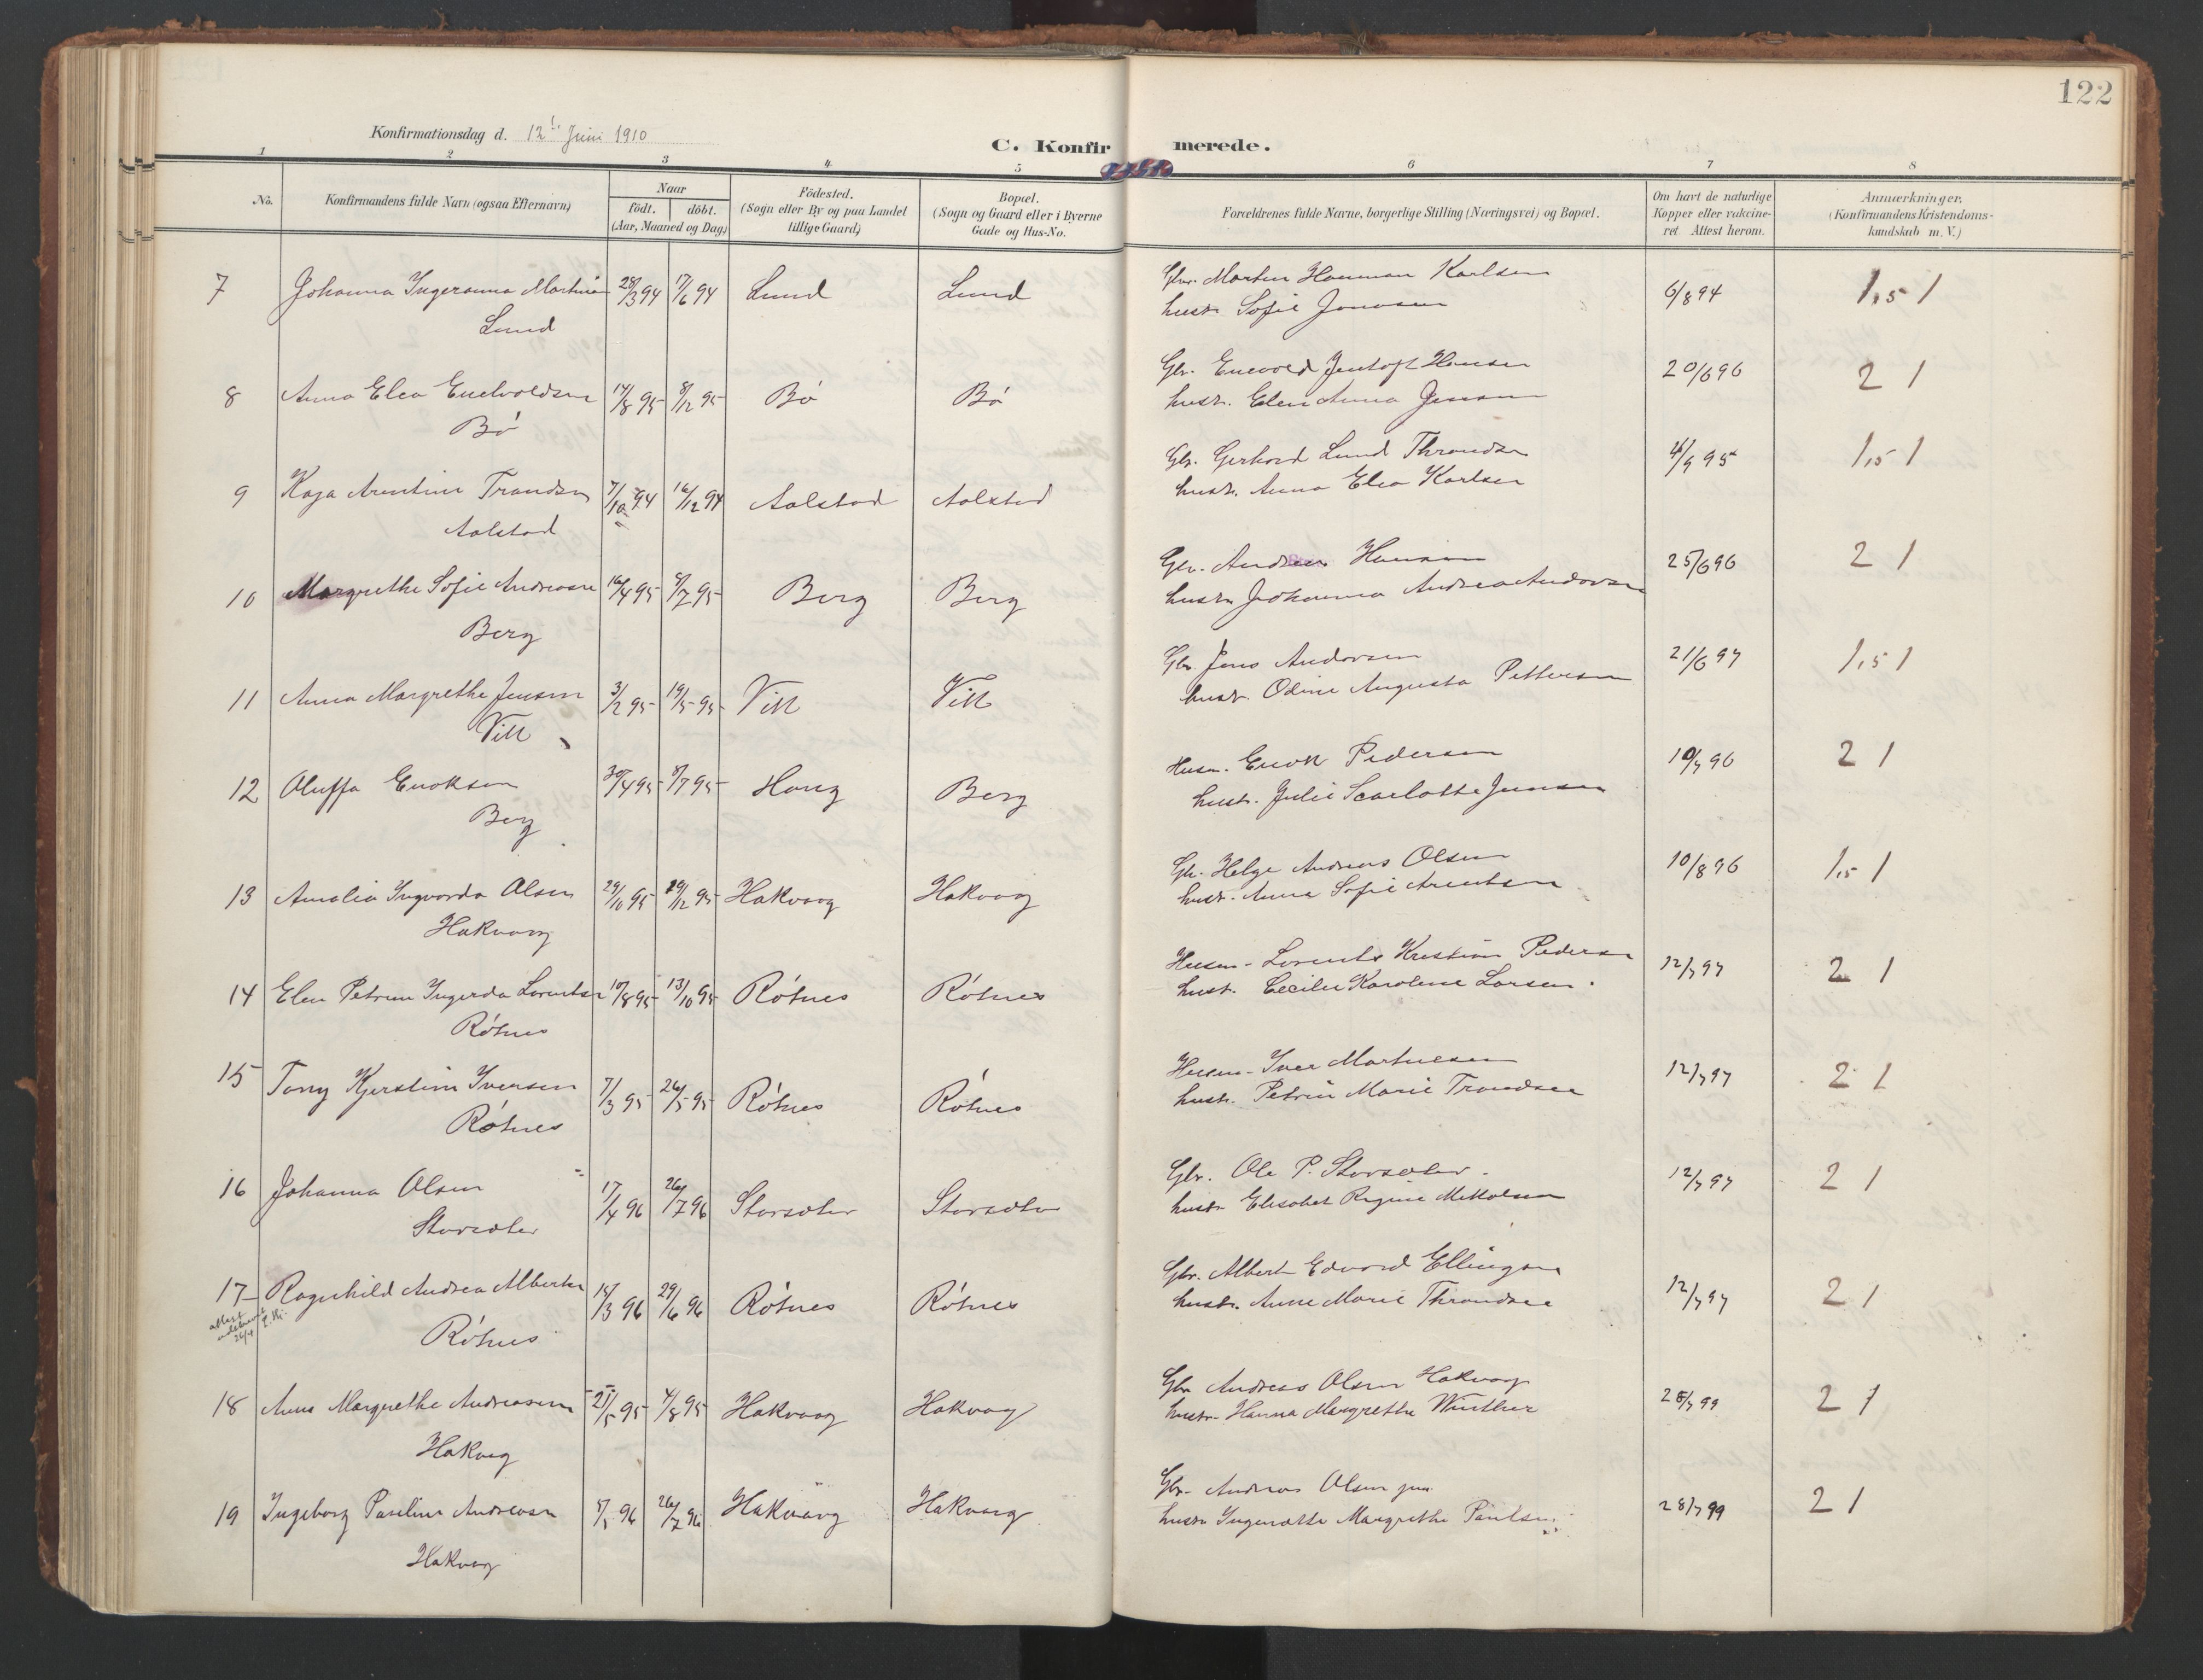 122
Konfirmationsdag d. 12' Juni 1910
C. Konfirmerede.
1 2 3 4 5 6 7 8
No.
Konfirmandens fulde Navn (ogsaa Efternavn)
Naar
födt. döbt.
(Aar, Maaned og Dag)
Födested.
(Sogn eller By og paa Landet
tillige Gaard)
Bopæl.
(Sogn og Gaard eller i Byerne
Gade og Hus-No.
Forældrenes fulde Navne, borgerlige Stilling (Næringsvei) og Bopæl.
Om havt de naturlige
Kopper eller vakcine-
ret Attest herom.
Anmærkninger.
(Konfirmandens Kristendoms-
kundskab m. V.)
7 Johanna Ingeranna Martine 28/3 94 17/6 94 Lund Lund Gbr. Martin Hanman Karlsen 6/8 94 1,5 1
Lund hustr. Sofie Jonasen
8 Anna Elea Enevoldsen 14/8 95 8/12 95 Bö Bö Gbr. Enevold Jentoft Hansen 20/6 96 2 1
Bö hustr. Elen Anna Jensen
9 Kaja Arentine Trondsen 7/10 94 16/12 94 Aalstad Aalstad Gbr. Gerhard Lund Throndsen 4/9 95 1,5 1
Aalstad hustr. Anna Elea Karlsen
10 Margrethe Sofie Andreasen 16/4 95 8/7 95 Berg Berg Gbr. Andreas Hansen 25/6 96 2 1
Berg hustr. Johanna Andrea Andorsen
11 Anna Margrethe Jensen 3/2 95 19/5 95 Vik Vik Gbr. Jens Andorsen 21/6 97 1,5 1
Vik hustr. Odine Augusta Pettersen
12 Oluffa Enoksen 30/4 95 8/7 95 Haug Berg Husm. Enok Pedersen 10/7 96 2 1
Berg hustr. Julie Scarlotte Jensen
13 Amalia Ingvarda Olsen 29/10 95 29/12 95 Hakvaag Hakvaag Gbr. Helge Andreas Olsen 10/8 96 1,5 1
Hakvaag hustr. Anna Sofie Arentsen
14 Elen Petrine Ingerda Lorentsen 10/8 95 13/10 95 Rötnes Rötnes Husm. Lorents Kristian Pedersen 12/7 97 2 1
Rötnes hustr. Cecilie Karoline Larsen.
15 Tony Kjerstine Iversen 7/3 95 26/5 95 Rötnes Rötnes Husm. Iver Martinesen 12/7 97 2 1
Rötnes hustr. Petrine Marie Trondsen
16 Johanna Olsen 17/4 96 26/7 96 Storsæter Storsæter Gbr. Ole P. Storsæter. 12/7 97 2 1
Storsæter hustr. Elisabet Regine Mikkalsen
17 Ragnhild Andrea Albertsen 15/3 96 29/6 96 Rötnes Rötnes Gbr. Albert Edvard Ellingsen 12/7 97 2 1
attest
Rötnes hustr. Anne Marie Throndsen
18 Anna Margrethe Andreasen 21/5 95 4/8 95 Hakvaag Hakvaag Gbr. Andreas Olsen Hakvaag 28/7 99 2 1
Hakvag hustr. Hanna Margrethe Winther
19 Ingeborg Pauline Andreasen 96 26/7 96 Hakvaag Hakvaag Gbr. Andreas Olsen jun. 28/7 99 2 1
Hakvag hustr. Ingeratte Margrethe Paulsen